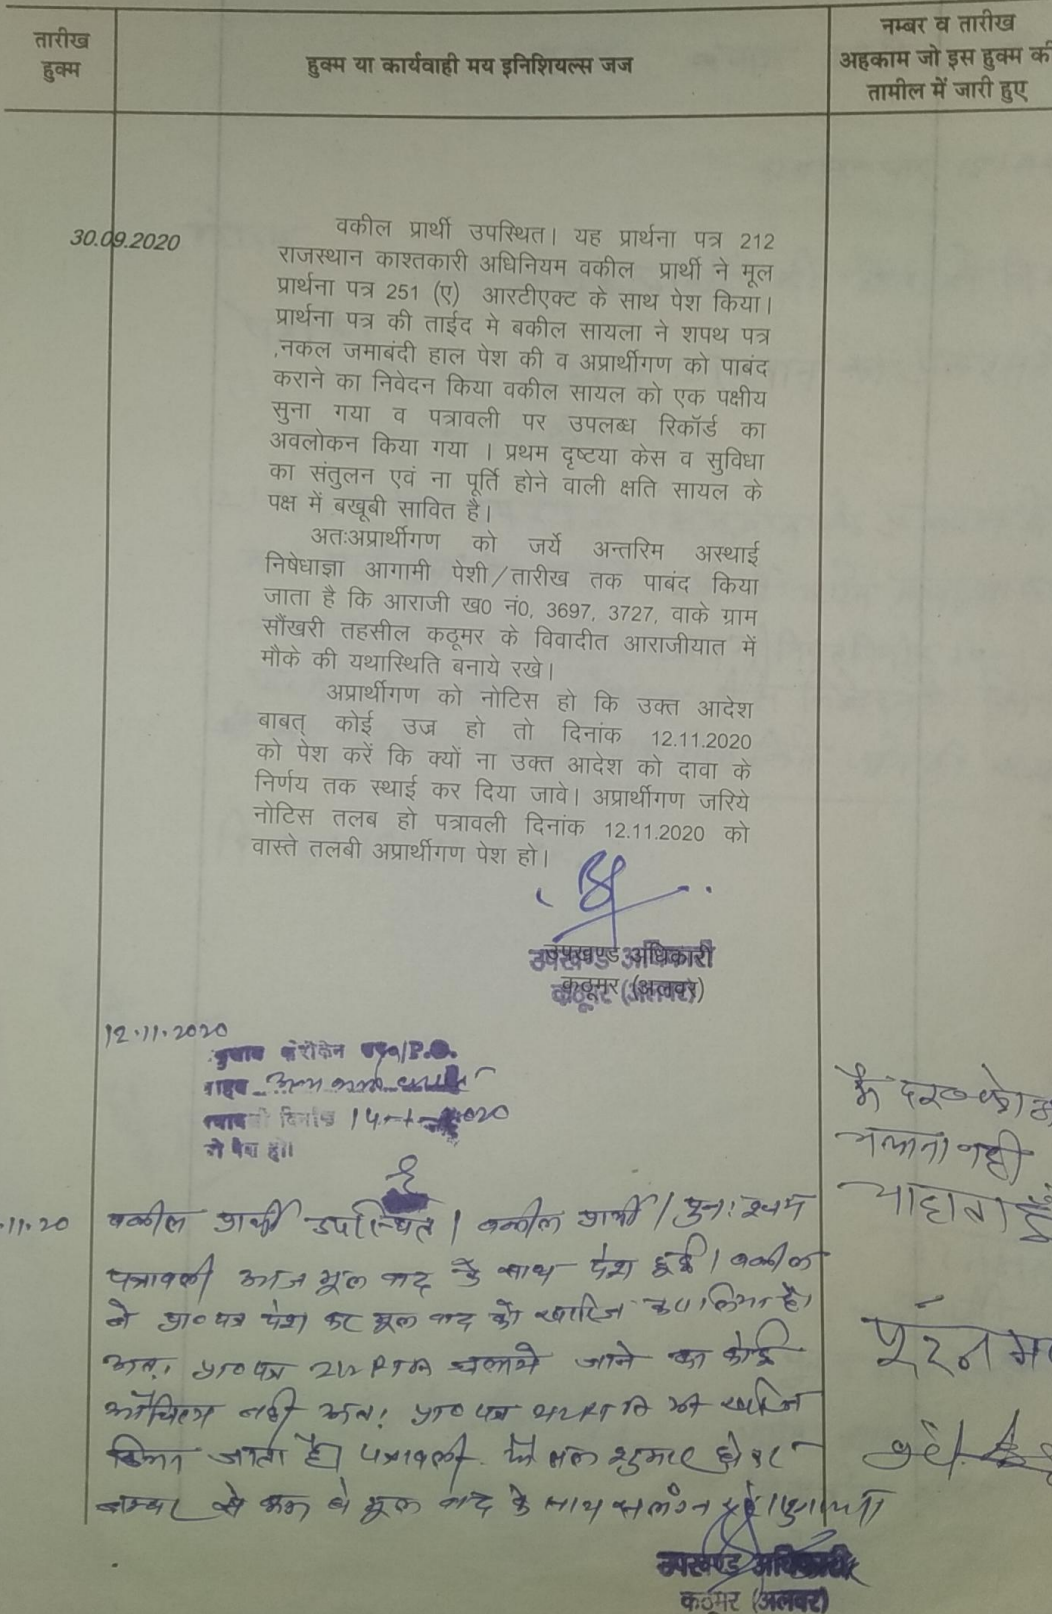 तारीख
हुक्म
हुक्म या कार्यवाही मय इनिशियल्स जज
नम्बर व तारीख
अहकाम जो इस हुक्म की
तामील में जारी हुए
30.09.2020
वकील प्रार्थी उपस्थित। यह प्रार्थना पत्र 212
राजस्थान काश्तकारी अधिनियम वकील प्रार्थी ने मूल
प्रार्थना पत्र 251 (ए) आरटीएक्ट के साथ पेश किया।
प्रार्थना पत्र की ताईद मे बकील सायला ने शपथ पत्र
,नकल जमाबंदी हाल पेश की व अप्रार्थीगण को पाबंद
कराने का निवेदन किया वकील सायल को एक पक्षीय
सुना गया व पत्रावली पर उपलब्ध रिकॉर्ड का
अवलोकन किया गया । प्रथम दृष्टया केस व सुविधा
का संतुलन एवं ना पूर्ति होने वाली क्षति सायल के
पक्ष में बखूबी सावित है।
अतःअप्रार्थीगण को जर्ये अन्तरिम अस्थाई
निषेधाज्ञा आगामी पेशी/तारीख तक पाबंद किया
जाता है कि आराजी ख0 नं0, 3697, 3727, वाके ग्राम
सौंखरी तहसील कठूमर के विवादीत आराजीयात में
मौके की यथास्थिति बनाये रखे।
अप्रार्थीगण को नोटिस हो कि उक्त आदेश
बाबत् कोई उज्र हो तो दिनांक 12.11.2020
को पेश करें कि क्यों ना उक्त आदेश को दावा के
निर्णय तक स्थाई कर दिया जावे। अप्रार्थीगण जरिये
नोटिस तलब हो पत्रावली दिनांक 12.11.2020 को
वास्ते तलबी अप्रार्थीगण पेश हो।
उपखण्ड अधिकारी
कठूमर (अलवर)
12.11.2020
दिनांक
पेश हो।
.11.20 वकील प्रार्थी उपस्थित। वकील प्रार्थी
पत्रावली आज मूल वाद के साथ पेश हुई। वकील
ने प्रा०पत्र पेश कर मूल वाद को खारिज करा लिया है।
अतः प्रा०पत्र चलाये जाने का कोई
औचित्य नही अतः प्रा०पत्र को खारिज
किया जाता है। पत्रावली फैसल शुमार होकर
नम्बर से कम हो मूल वाद के साथ सलंग्न रहे।
मै दरखास्त
चलाना नही
चाहता हूँ
पूरन
उपखण्ड अधिकारी
कठूमर (अलवर)